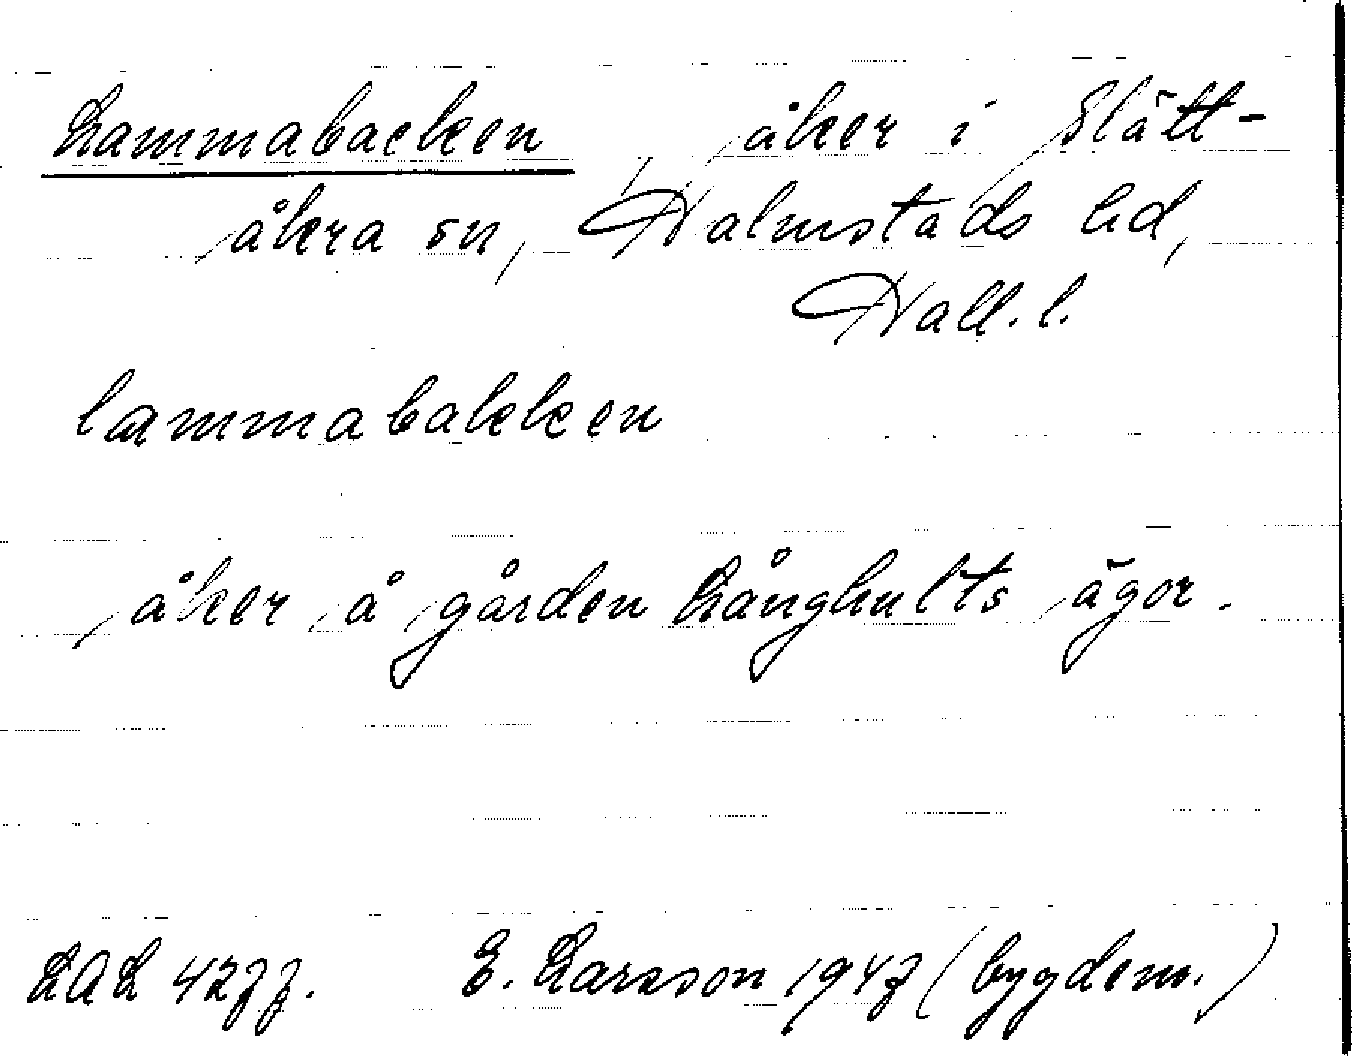 Lammabacken, åker i Slätt-
åkra sn, Halmstads hd,
Hall. l.
lammabakken
åker å gården Långhults ägor.
LAL 4277. E. Larsson 1947 (bygdem.)